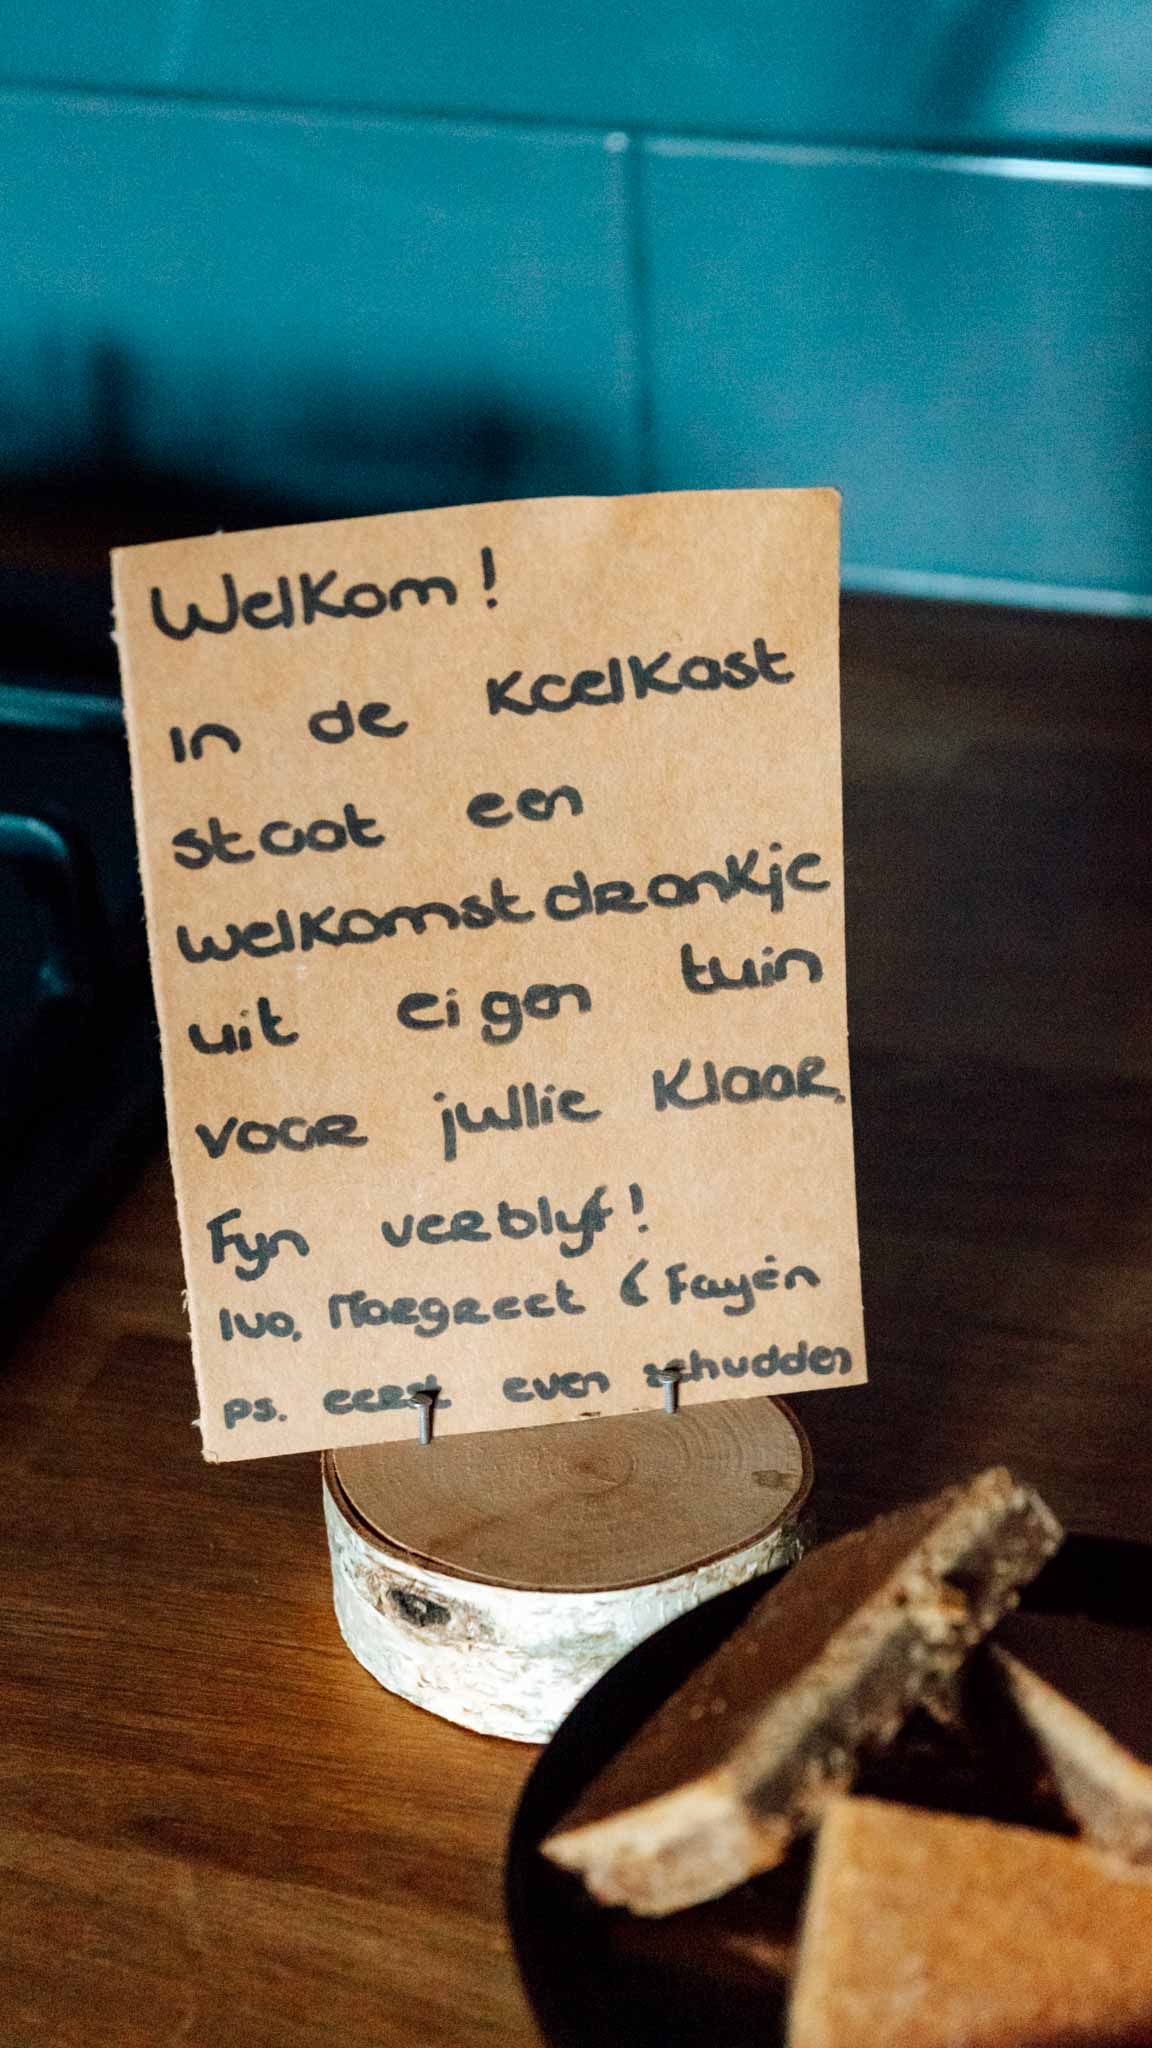 Welkom!
In de koelkast
staat een
welkomstdrankje
uit eigen tuin
voor jullie klaar.
Fyn verblyf!
Ivo, Margreet & Fayèn
ps. eerst even schudden